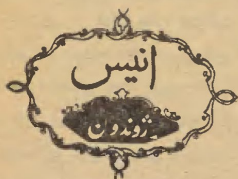 انیس
ژوندون